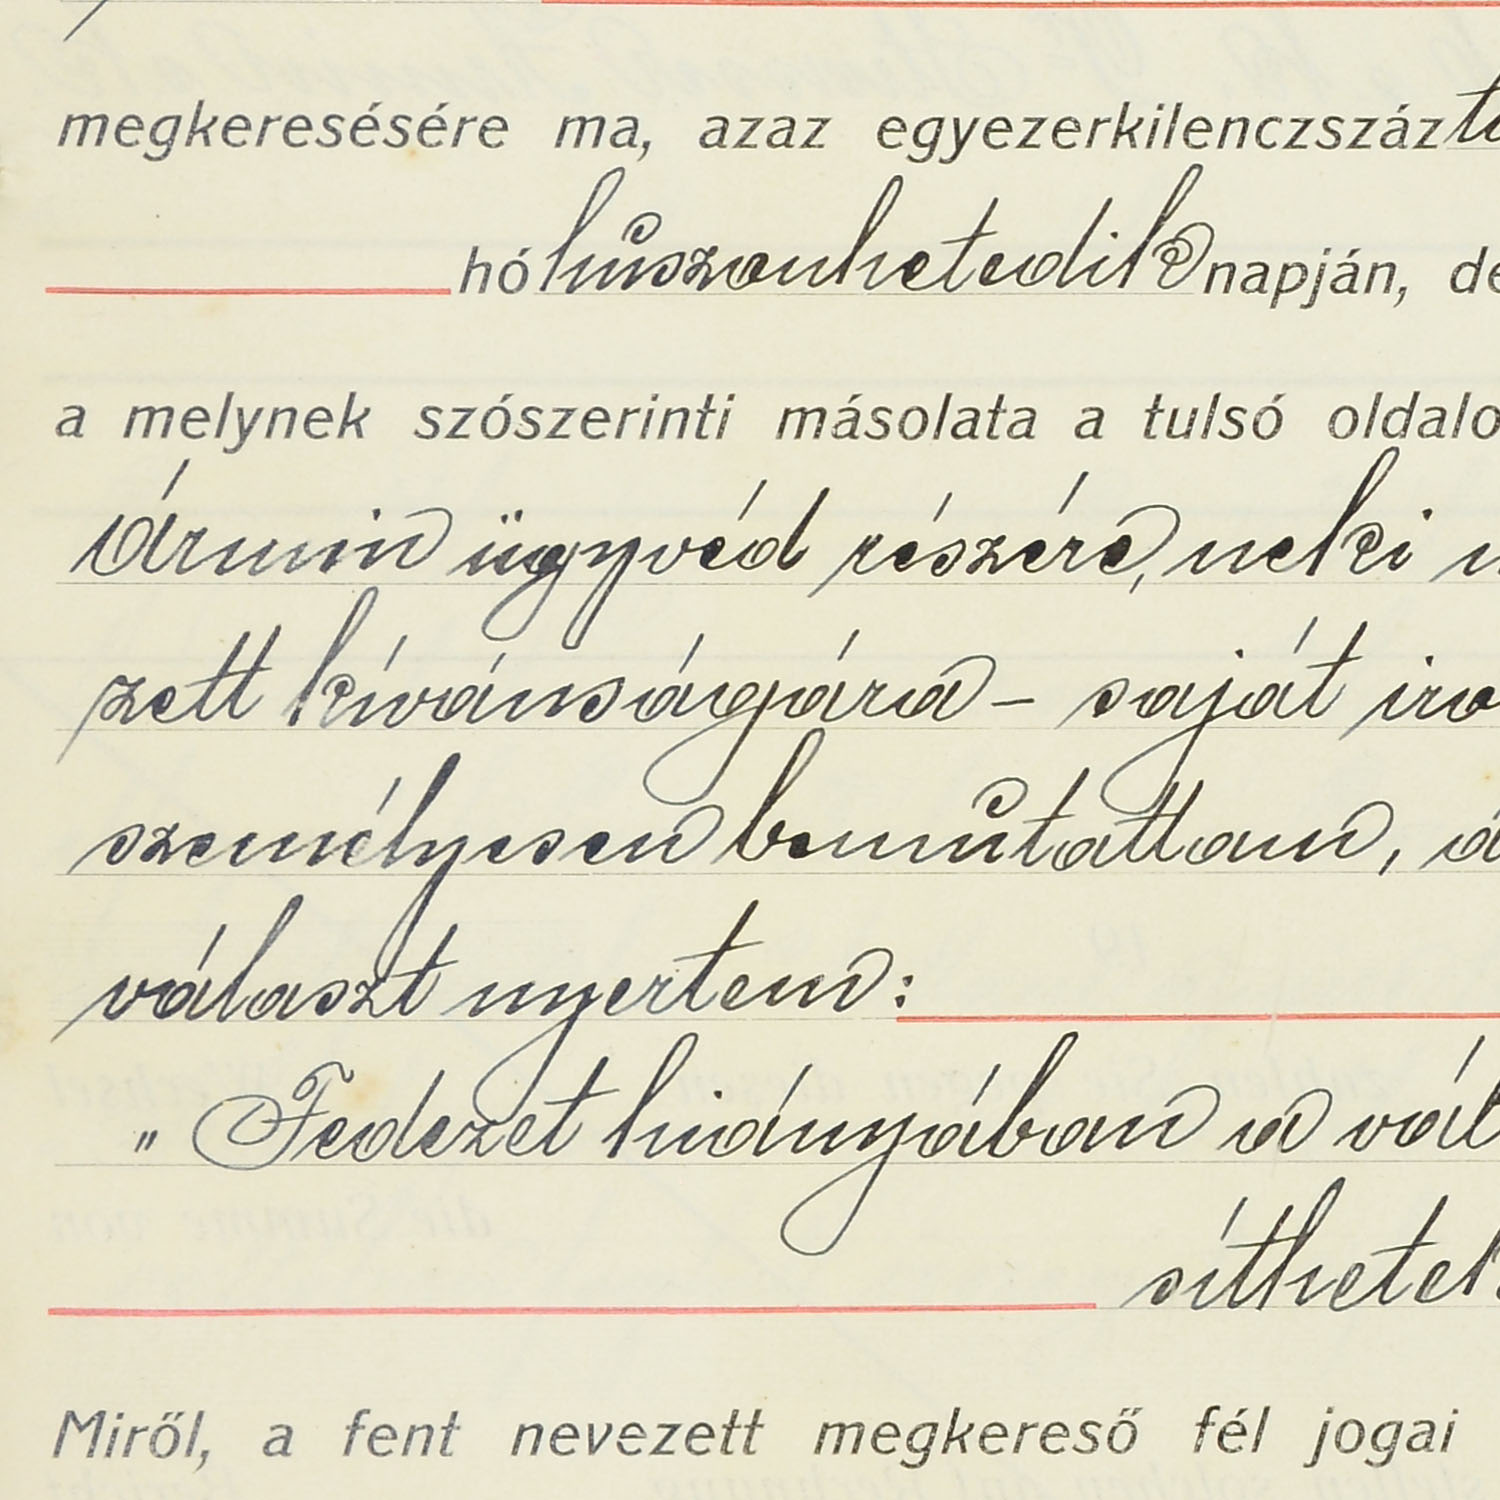 megkeresésére ma, azaz egyezerkilenczszáz
hó huszonhetedik napján, de
a melynek szószerinti másolata a tulsó oldalo
Ármin ügyvéd részére, neki
zett kívánságára – saját iro
személyesen bemutattam, a
választ nyertem:
„Fedezet hiányában a vál
síthetek
Miről, a fent nevezett megkereső fél jogai